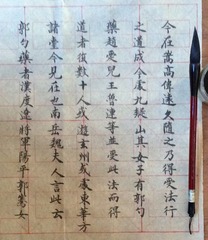 今在嵩高偉遠久隨之乃得受法行
之道成今處九疑山其女子有郭勺
藥趙愛兒王魯連等並受此法而得
道者復數十人或遊玄州或處東華方
諸臺今見在也南岳魏夫人言此云
郭勺藥者漢度遼將軍陽平郭騫女